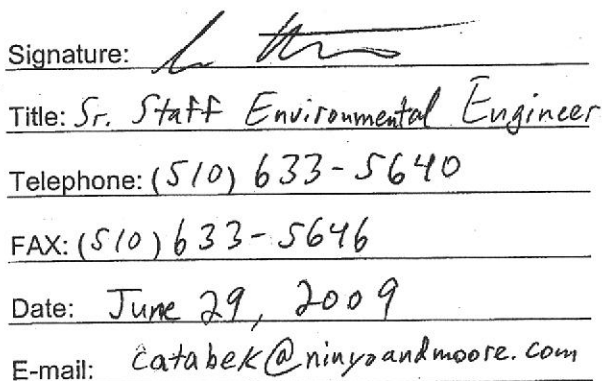 Signature:
Title: Sr. Staff Environmental Engineer
Telephone: (510) 633-5640
FAX: (510) 633-5646
Date: June 29, 2009
E-mail: catabek@ninyoandmoore.com